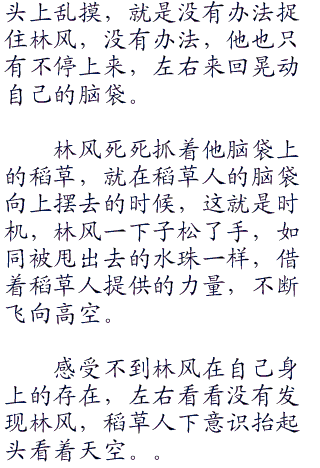 头上乱摸，就是没有办法捉
住林风，没有办法，他也只
有不停上来，左右来回晃动
自己的脑袋。
林风死死抓着他脑袋上
的稻草，就在稻草人的脑袋
向上摆去的时候，这就是时
机，林风一下子松了手，如
同被甩出去的水珠一样，借
着稻草人提供的力量，不断
飞向高空。
感受不到林风在自己身
上的存在，左右看看没有发
现林风，稻草人下意识抬起
头看着天空。。